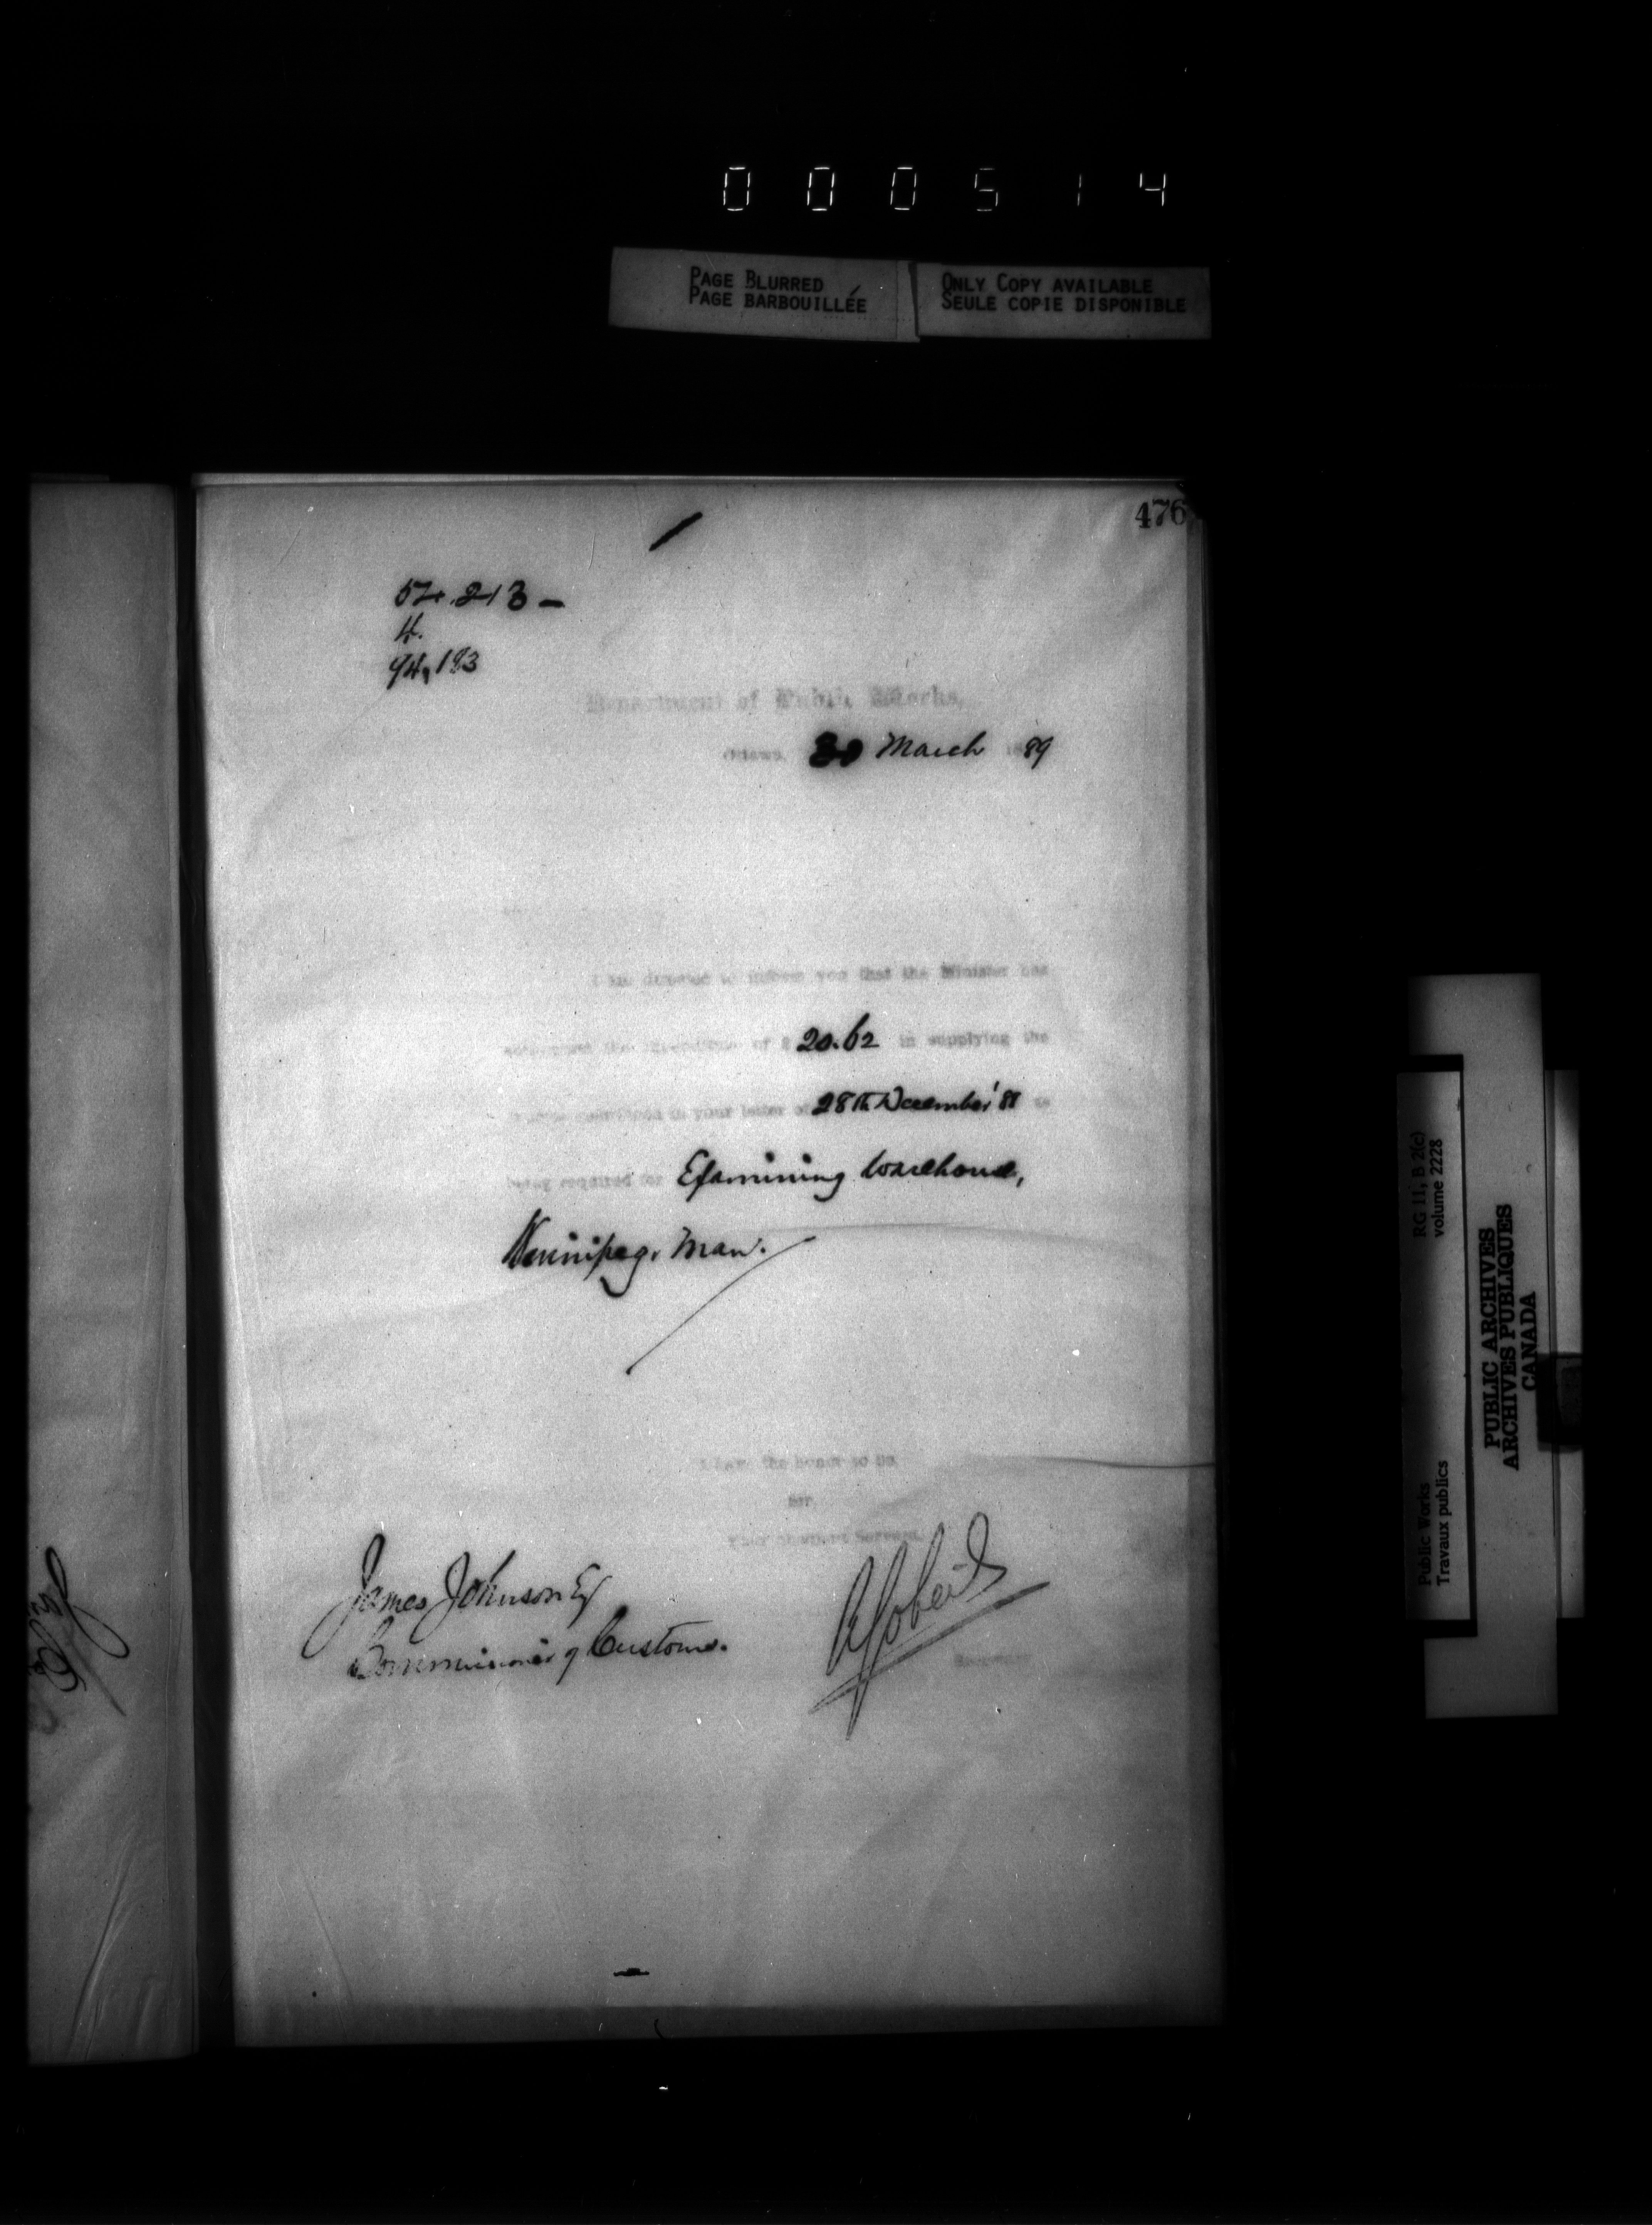 000514
PAGE BLURRED
PAGE BARBOUILLÉE
ONLY COPY AVAILABLE
SEULE COPIE DISPONIBLE
476
213 -
4.
94,183
Department of Public Works,
Ottawa, 30 March 1889
I am directed to inform you that the Minister has
authorized the expenditure of $ 20.62 in supplying the
mentioned in your letter of 28th December '88 as
being required for Examining Warehouse,
Winnipeg, Man.
I have the honor to be
Sir,
Your obedient Servant
James Johnson Esq
Commissioner of Customs.
Secretary
RG 11, B 2(c)
volume 2228
Public Works
Travaux publics
PUBLIC ARCHIVES
ARCHIVES PUBLIQUES
CANADA